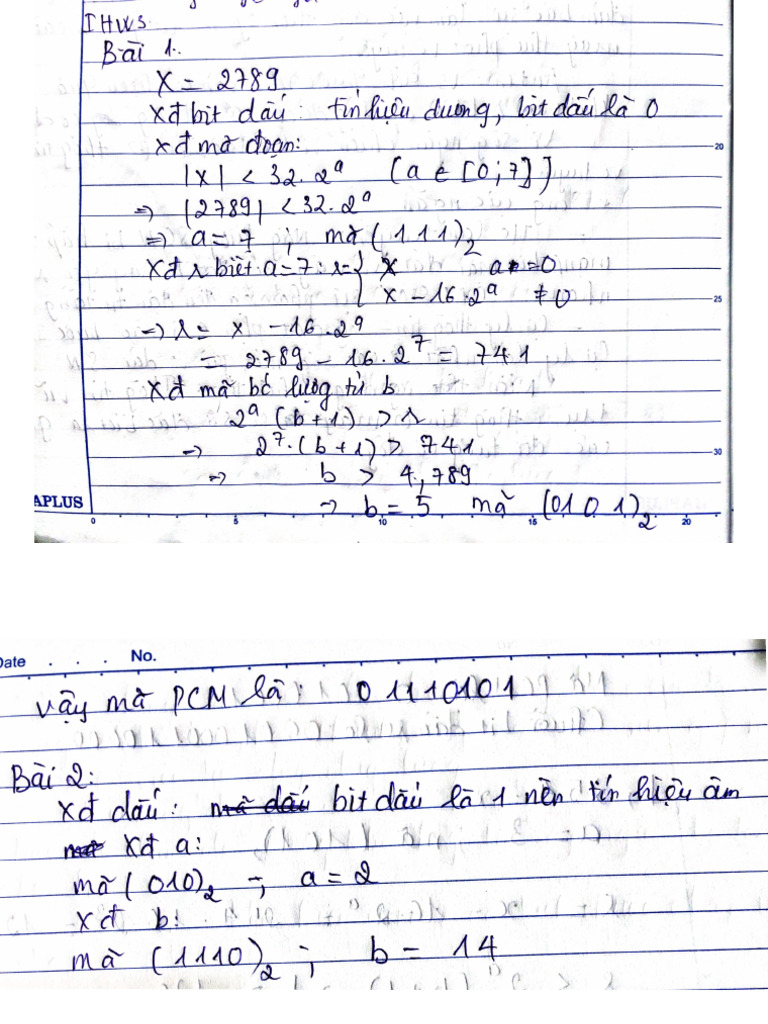 IHW5
Bài 1.
X = 2789
Xđ bit dấu: tín hiệu dương, bit dấu là 0
Xđ mã đoạn:
|x| < 32. 2^a (a ∈ [0;7])
=> |2789| < 32. 2^a
=> a = 7 ; mã (111)₂
Xđ r biết a=7: r = { x a = 0
{ x - 16. 2^a ≠ 0
=> r = x - 16. 2^a
= 2789 - 16. 2^7 = 741
Xđ mã bó lượng tử b
2^a (b+1) > r
=> 2^7. (b+1) > 741
=> b > 4,789
=> b = 5 mã (0101)₂
APLUS 0 5 10 15 20
20
25
30
Date . . . . No.
Vậy mã PCM là: 01110101
Bài 2:
Xđ dấu: mã dấu bit dấu là 1 nên tín hiệu âm
Xđ a:
mã (010)₂ ; a = 2
Xđ b:
mã (1110)₂ ; b = 14